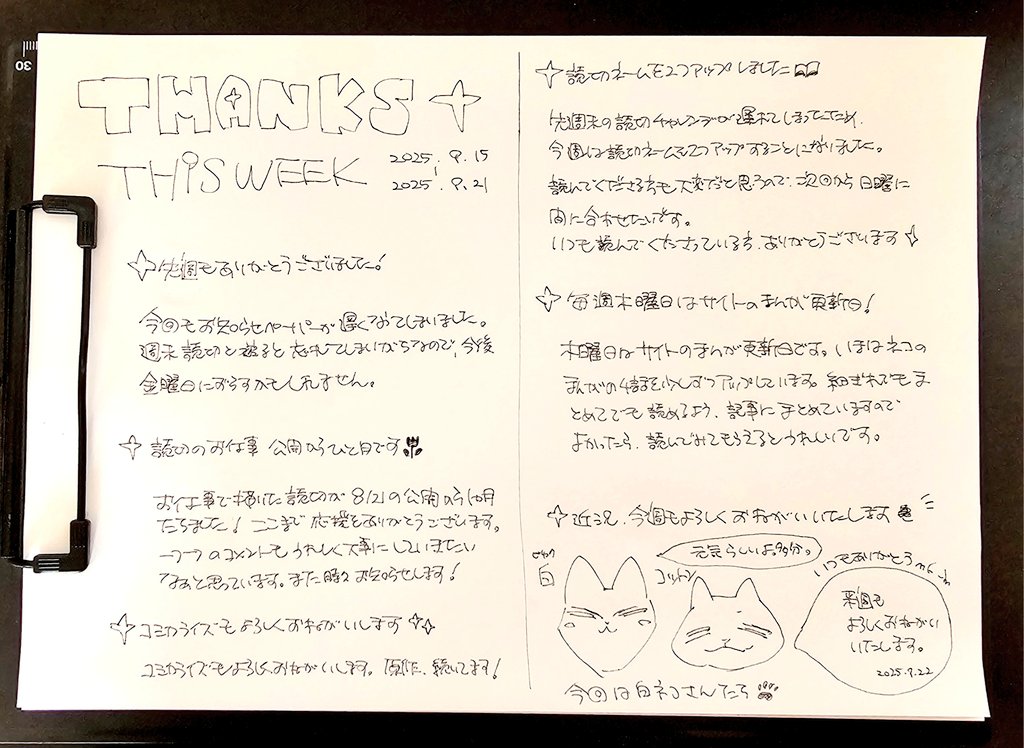 30
THANKS
THIS WEEK
2025.9.15
2025.9.21
先週もありがとうございました!
今回もお知らせペーパーが遅くなってしまいました。
週末読切と被ると忘れてしまいがちなので、今後
金曜日にずらすかもしれません。
読切のお仕事 公開からひと月です
お仕事で描いた読切が8/21の公開から1か月
たちました! ここまで応援をありがとうございます。
一つ一つのコメントもうれしく大事にしていきたい
なあと思っています。また暇々お知らせします!
コミカライズもよろしくおねがいします
コミカライズもよろしくおねがいします。原作、続いてます!
読切ネームを2つアップしました
先週末の読切チャレンジが遅れてしまったため、
今週は読切ネームを2つアップすることになりました。
読んでくださる方も大変だと思うので、次回から日曜に
間に合わせたいです。
いつも読んでくださっている方、ありがとうございます
毎週木曜日はサイトのまんが更新日!
木曜日はサイトのまんが更新日です。いまはネコの
まんがの4話を少しずつアップしています。細ぎれでもま
とめてでも読めるよう、記事にまとめていますので
よかったら、読んでみてもらえるとうれしいです。
近況、今週もよろしくおねがいいたします
白
元気らしいよ。多分。
コットン
いつもありがとう
来週も
よろしくおねがい
いたします。
2025.9.22
今回は白ネコさんたち